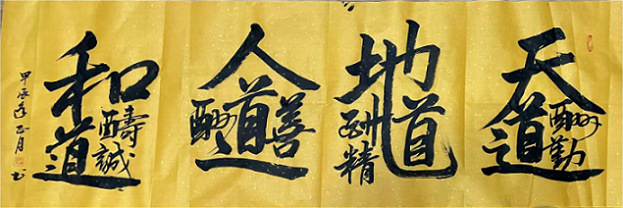 天道酬勤
地道酬精
人道酬善
和道醻誠
甲辰年正月书